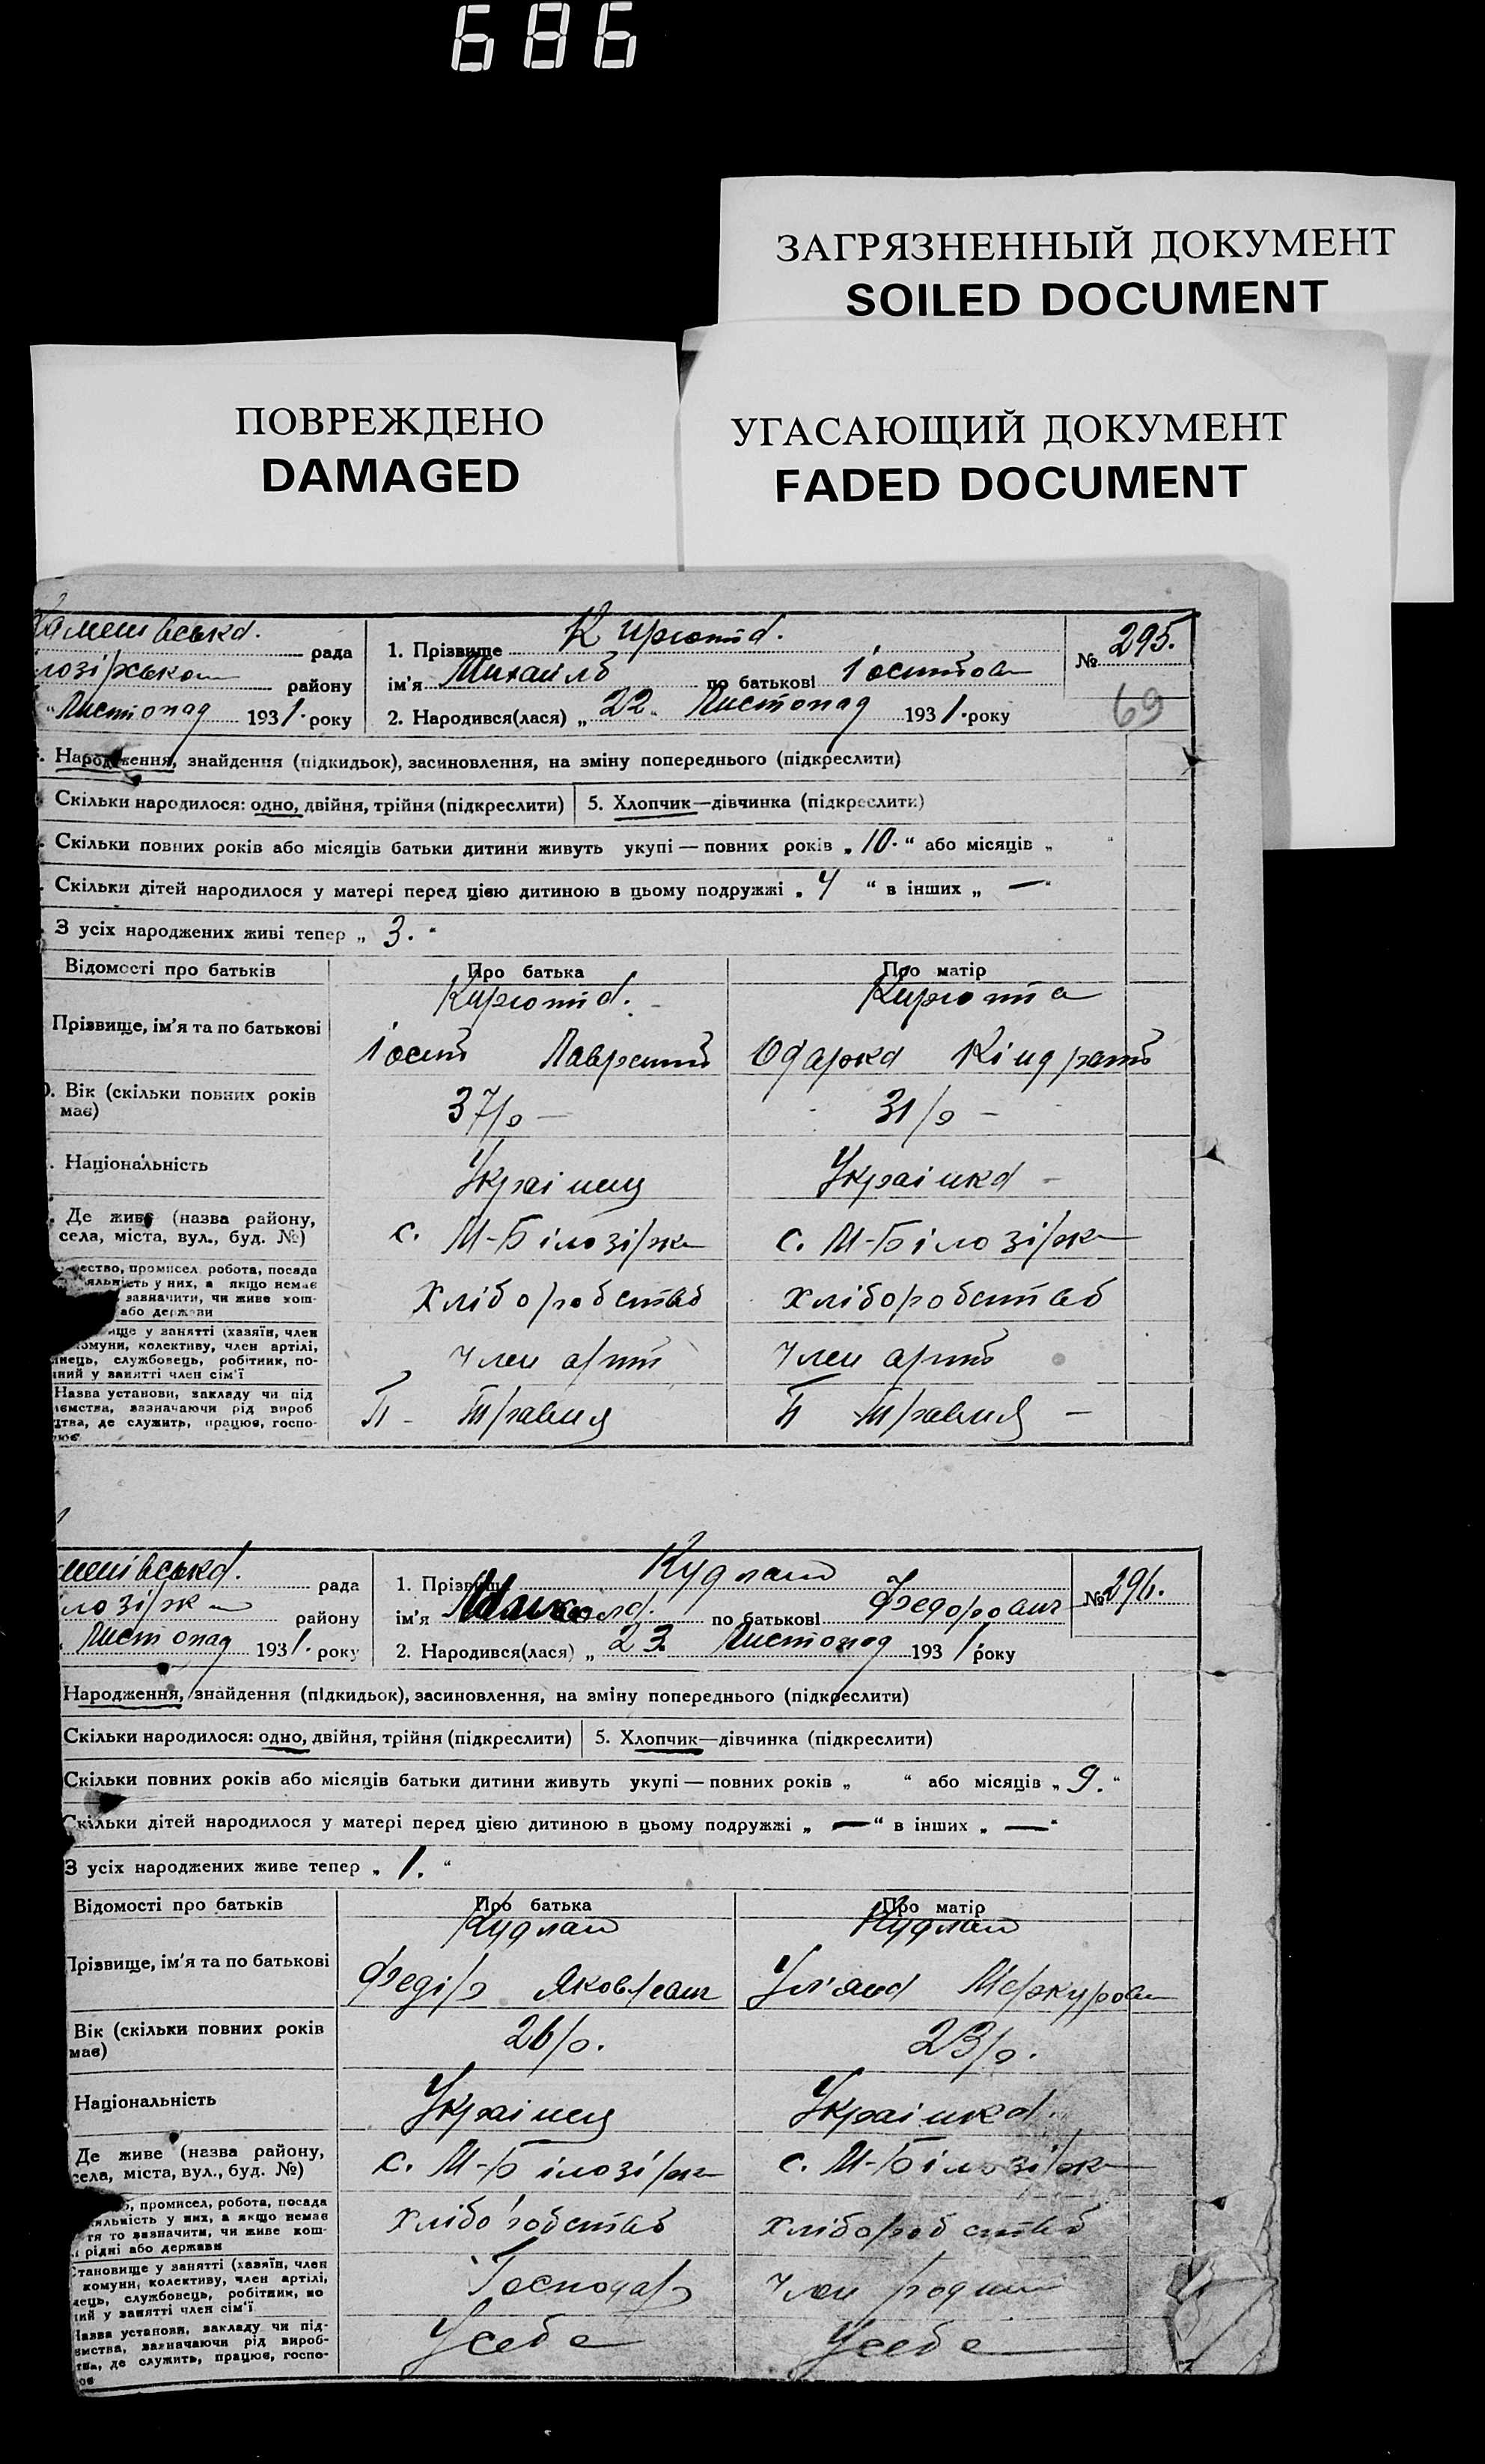 686
ЗАГРЯЗНЕННЫЙ ДОКУМЕНТ
SOILED DOCUMENT
ПОВРЕЖДЕНО
DAMAGED
УГАСАЮЩИЙ ДОКУМЕНТ
FADED DOCUMENT
рада
району
Листопад 1931 року
1. Прізвище Кирюта
ім'я Михаило по батькові Іосипов
2. Народився(лася) „ 22 " Листопад 1931 року
№ 295.
69
Народження, знайдення (підкидьок), засиновлення, на зміну попереднього (підкреслити)
Скільки народилося: одно, двійня, трійня (підкреслити) 5. Хлопчик—дівчинка (підкреслити)
Скільки повних років або місяців батьки дитини живуть укупі — повних років „ 10. " або місяців „ "
Скільки дітей народилося у матері перед цією дитиною в цьому подружжі „ 4 " в інших „ — "
З усіх народжених живі тепер „ 3. "
Відомості про батьків Про батька Про матір
Кирюта Кирюта
Прізвище, ім'я та по батькові
Іосип Лаврент Одарка Кіндрат
Вік (скільки повних років має) 37/р — 31/р —
. Національність Українец Українка
Де живе (назва району, села, міста, вул., буд. №) с. М-Білозірка с. М-Білозірка
промисел, робота, посада
у них, а якщо немає
зазначити, чи живе кош-
або держави
Хліборобство Хліборобство
у занятті (хазяїн, член
комуни, колективу, член артілі,
службовець, робітник, по-
у занятті член сім'ї
Член арт Член арт
Назва установи, закладу чи під
зазначаючи рід вироб
де служить, працює, госпо-
рада
району
Листопад 1931. року
1. Прізвище Кудлай
ім'я Микола по батькові Федорович
2. Народився(лася) „ 23. Листопад 1931 року
№ 296.
Народження, знайдення (підкидьок), засиновлення, на зміну попереднього (підкреслити)
Скільки народилося: одно, двійня, трійня (підкреслити) 5. Хлопчик—дівчинка (підкреслити)
Скільки повних років або місяців батьки дитини живуть укупі — повних років „ " або місяців „ 9. "
Скільки дітей народилося у матері перед цією дитиною в цьому подружжі „ — " в інших „ — "
З усіх народжених живе тепер „ 1. "
Відомості про батьків Про батька Про матір
Кудлай Кудлай
Прізвище, ім'я та по батькові
Федір Яковлевич Ул'яна Меркуров
Вік (скільки повних років має) 26/р. 23/р.
Національність Українец Українка.
Де живе (назва району, села, міста, вул., буд. №) с. М-Білозірка с. М-Білозірка
промисел, робота, посада
у них, а якщо немає
то зазначити, чи живе кош-
рідні або держави
Хліборобство Хліборобство
Становище у занятті (хазяїн, член
комуни, колективу, член артілі,
службовець, робітник, по
у занятті член сім'ї
Господар Член родини
Назва установи, закладу чи під-
зазначаючи рід вироб-
де служить, працює, госпо-
У себе У себе